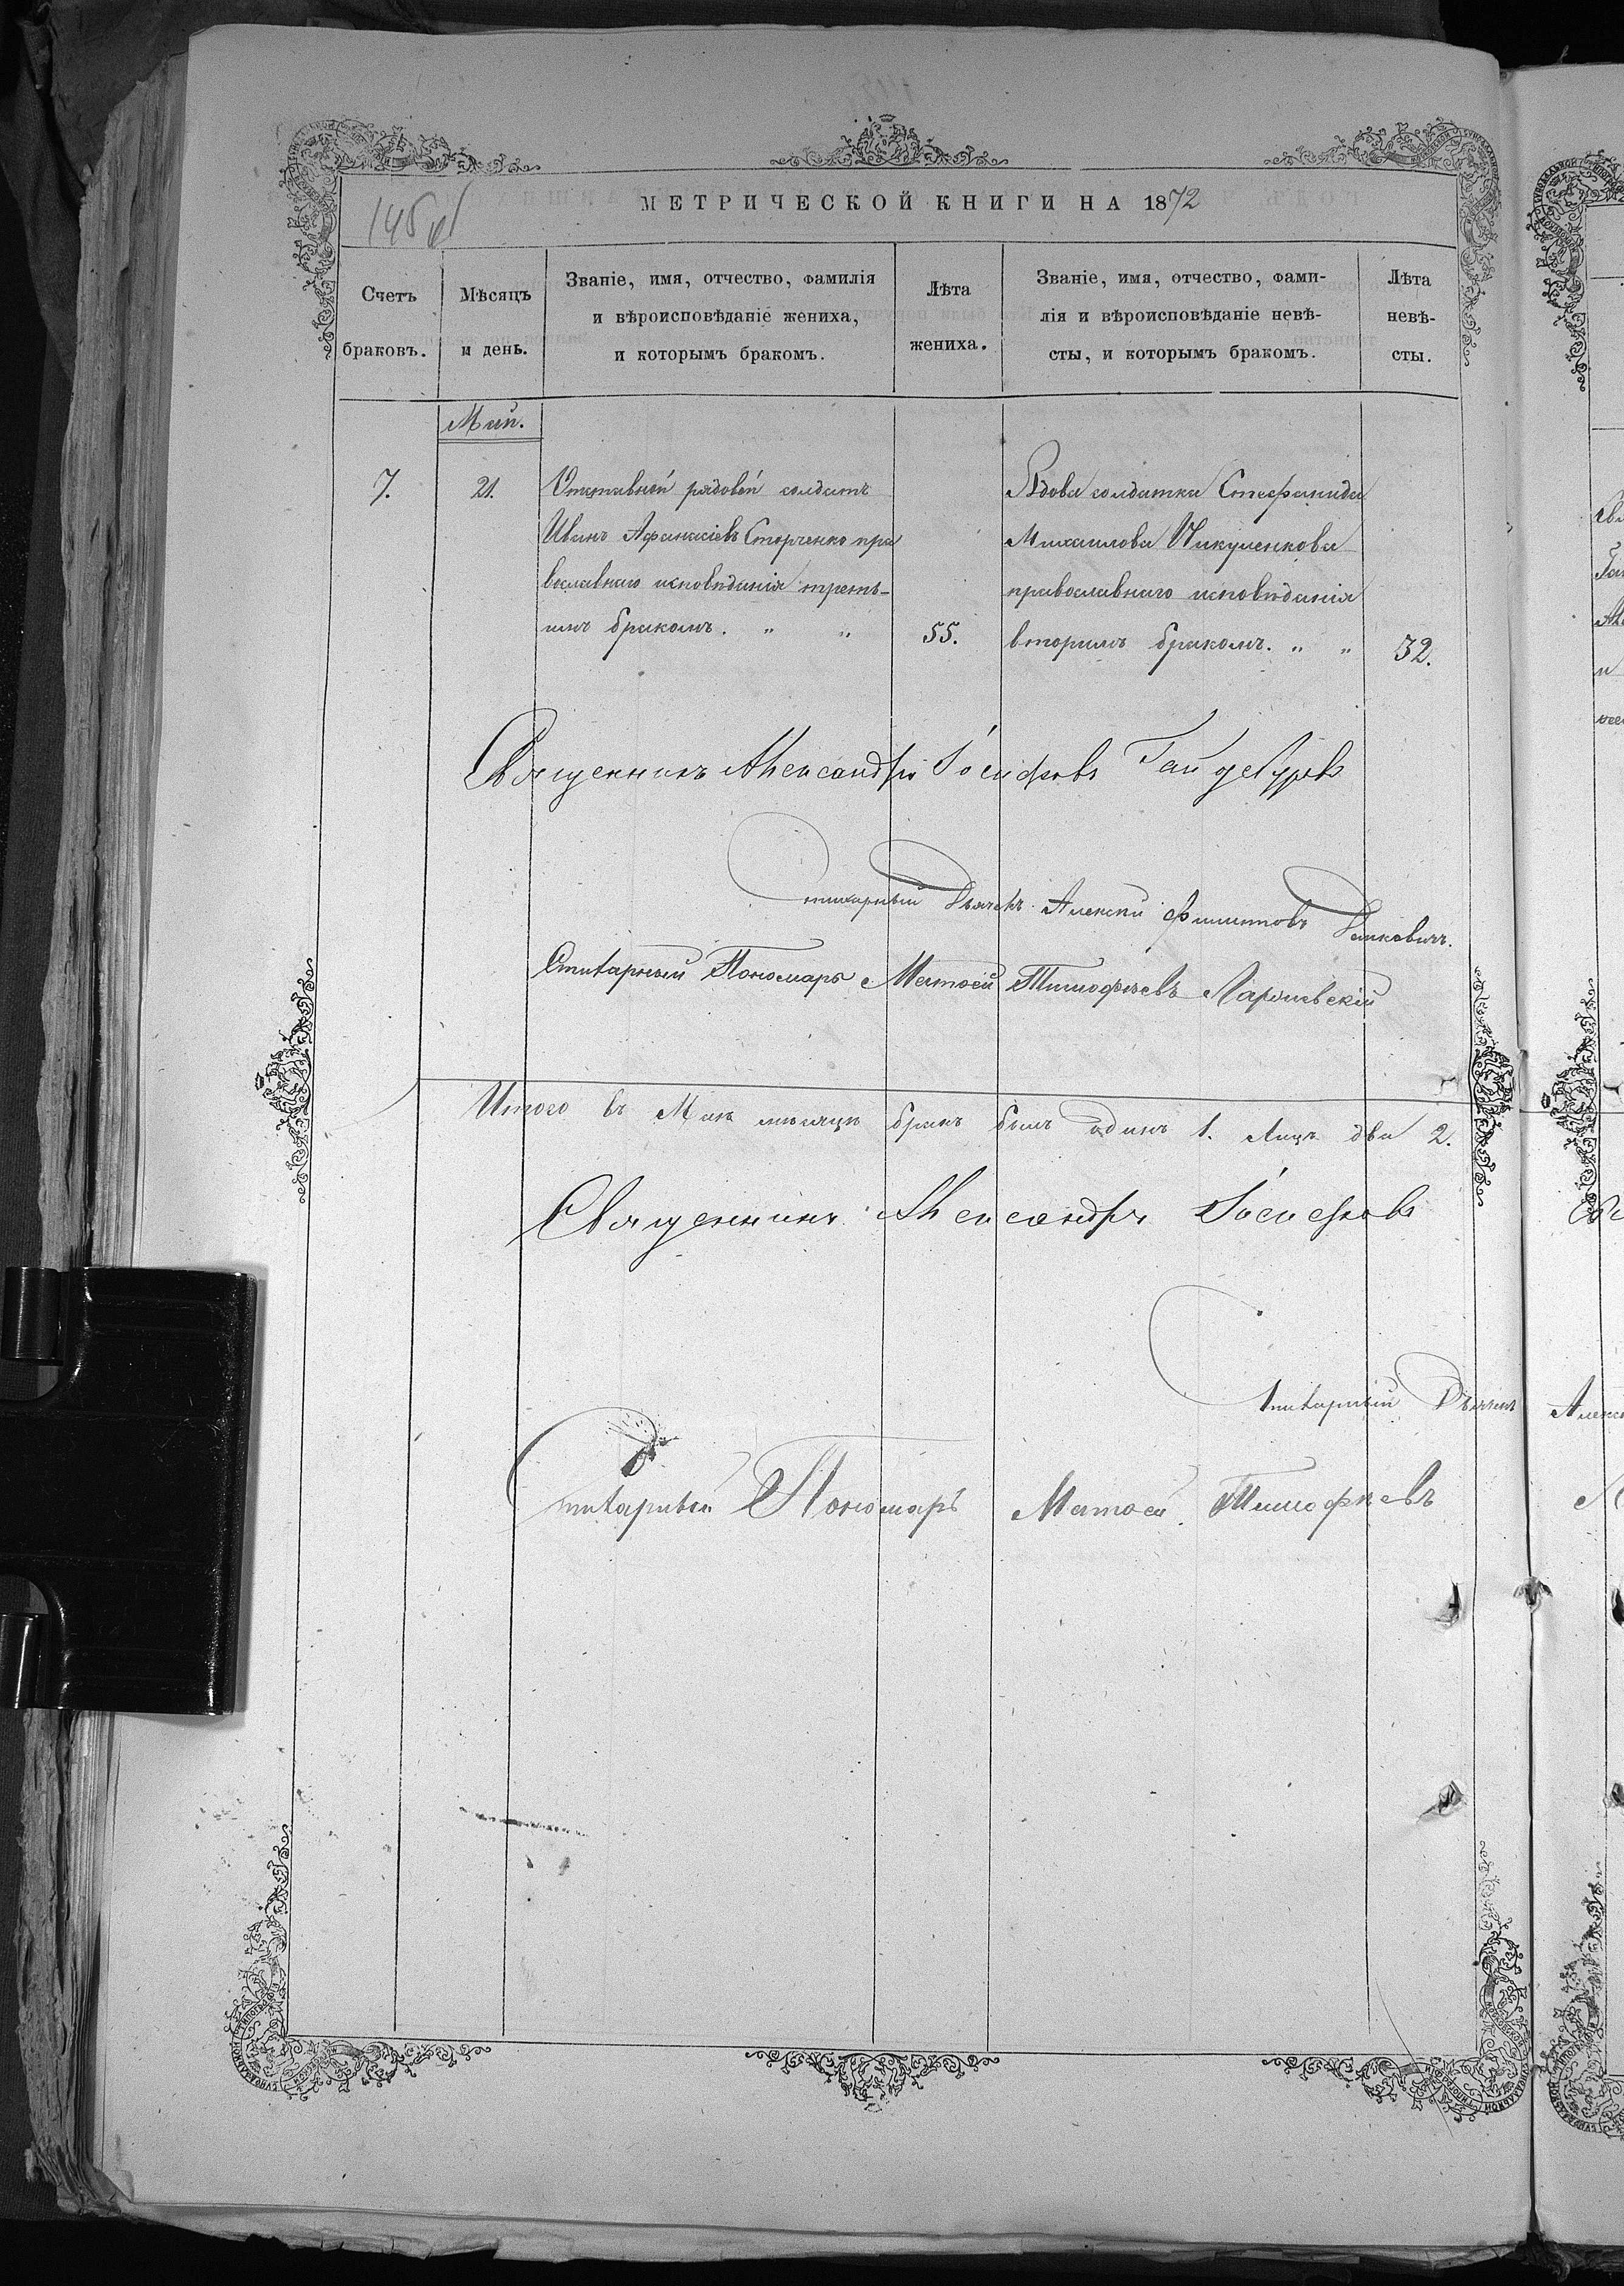 145 об
МЕТРИЧЕСКОЙ КНИГИ НА 1872
Счетъ браковъ.
Мѣсяцъ и день.
Званіе, имя, отчество, фамилія
и вѣроисповѣданіе жениха,
и которымъ бракомъ.
Лѣта жениха.
Званіе, имя, отчество, фами-
лія и вѣроисповѣданіе невѣ-
сты, и которымъ бракомъ.
Лѣта невѣ-
сты.
Май.
7.
21.
Отставной рядовой солдатъ
Иванъ Афанасіевъ Сторченко пра
вославнаго исповѣданія треть-
имъ бракомъ. " "
55.
Вдова солдатка Стефанида
Михаилова Никуленкова
православнаго исповѣданія
вторимъ бракомъ. " "
32.
Священникъ Александръ Іосифовъ Гайдебуровъ
Стихарный Дьячекъ Алексѣй Филиповъ
Стихарный Пономарь Матвей Тимофѣевъ
Итого въ Маѣ мѣсяцѣ бракъ былъ одинъ 1. Лицъ два 2.
Священникъ Александръ Іосифовъ
Стихарный Дьячекъ
Стихарный Пономарь Матвей Тимофѣевъ